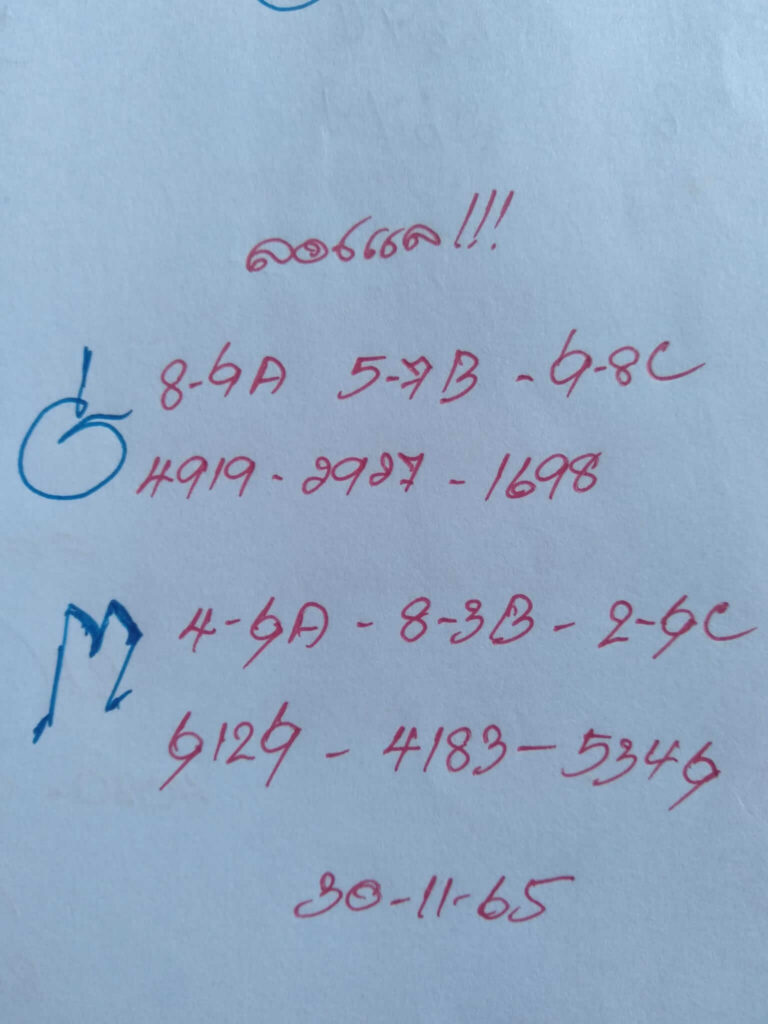 ลองแล!!!
8-9A 5-7B - 9-8C
4919 - 2927 - 1698
4-9A - 8-3B - 2-9C
9129 - 4183 - 5349
30-11-65